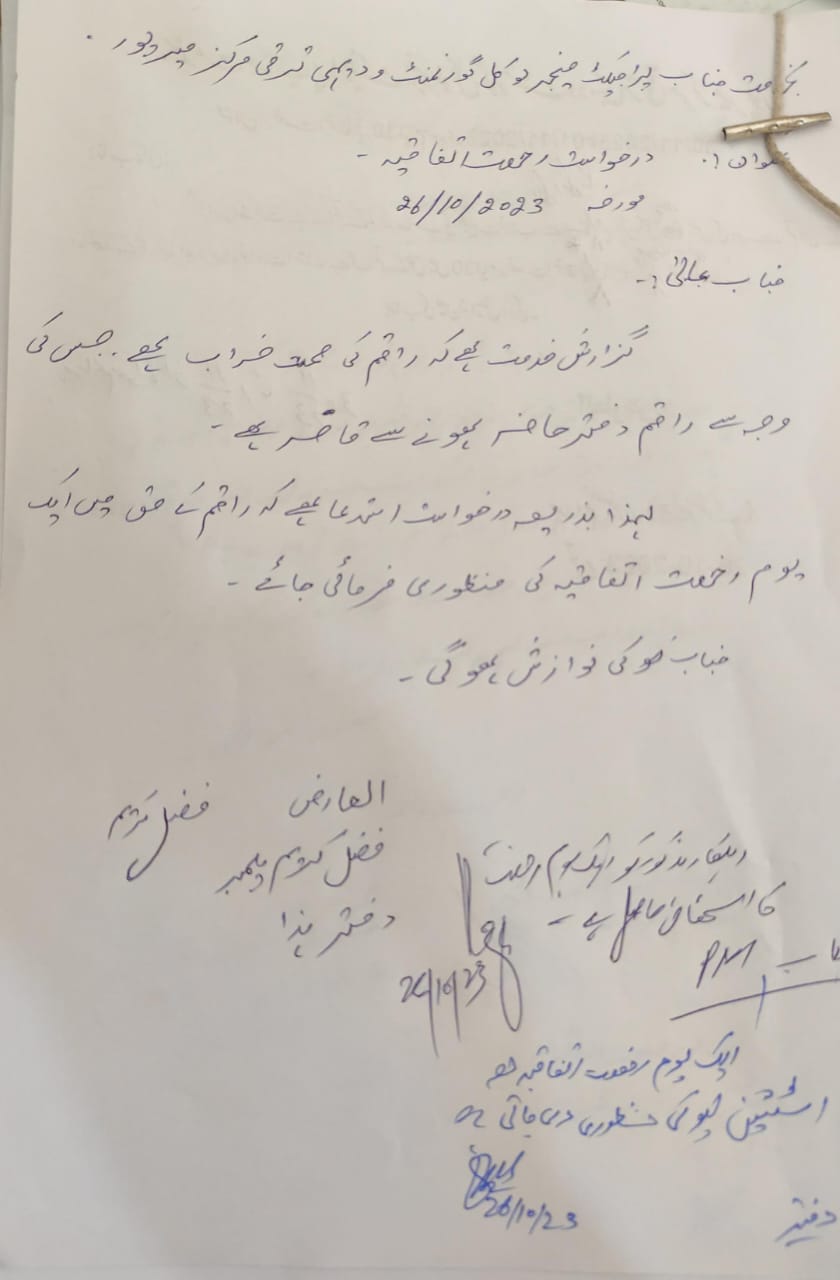 بخدمت جناب پراجیکٹ منیجر لوکل گورنمنٹ و دیہی ترقی مرکز میرپور ۔
عنوان :۔ درخواست رخصت اتفاقیہ ۔
مورخہ 26/10/2023
جناب عالیٰ :۔
گزارش خدمت ہے کہ راقم کی صحت خراب ہے ۔ جس کی
وجہ سے راقم دفتر حاضر ہونے سے قاصر ہے ۔
لہذا بذریعہ درخواست استدعا ہے کہ راقم کے حق میں ایک
یوم رخصت اتفاقیہ کی منظوری فرمائی جائے ۔
جناب کی نوازش ہو گی ۔
العارض فضل کریم
فضل کریم پلمبر
دفتر ہذا
اہلکار مذکور کو ایک یوم رخصت
کا استحقاق حاصل ہے ۔
26/10/23
PM
ایک یوم رخصت اتفاقیہ
اسٹیشن لیو کی منظوری دی جاتی ہے
26/10/23
دفتر